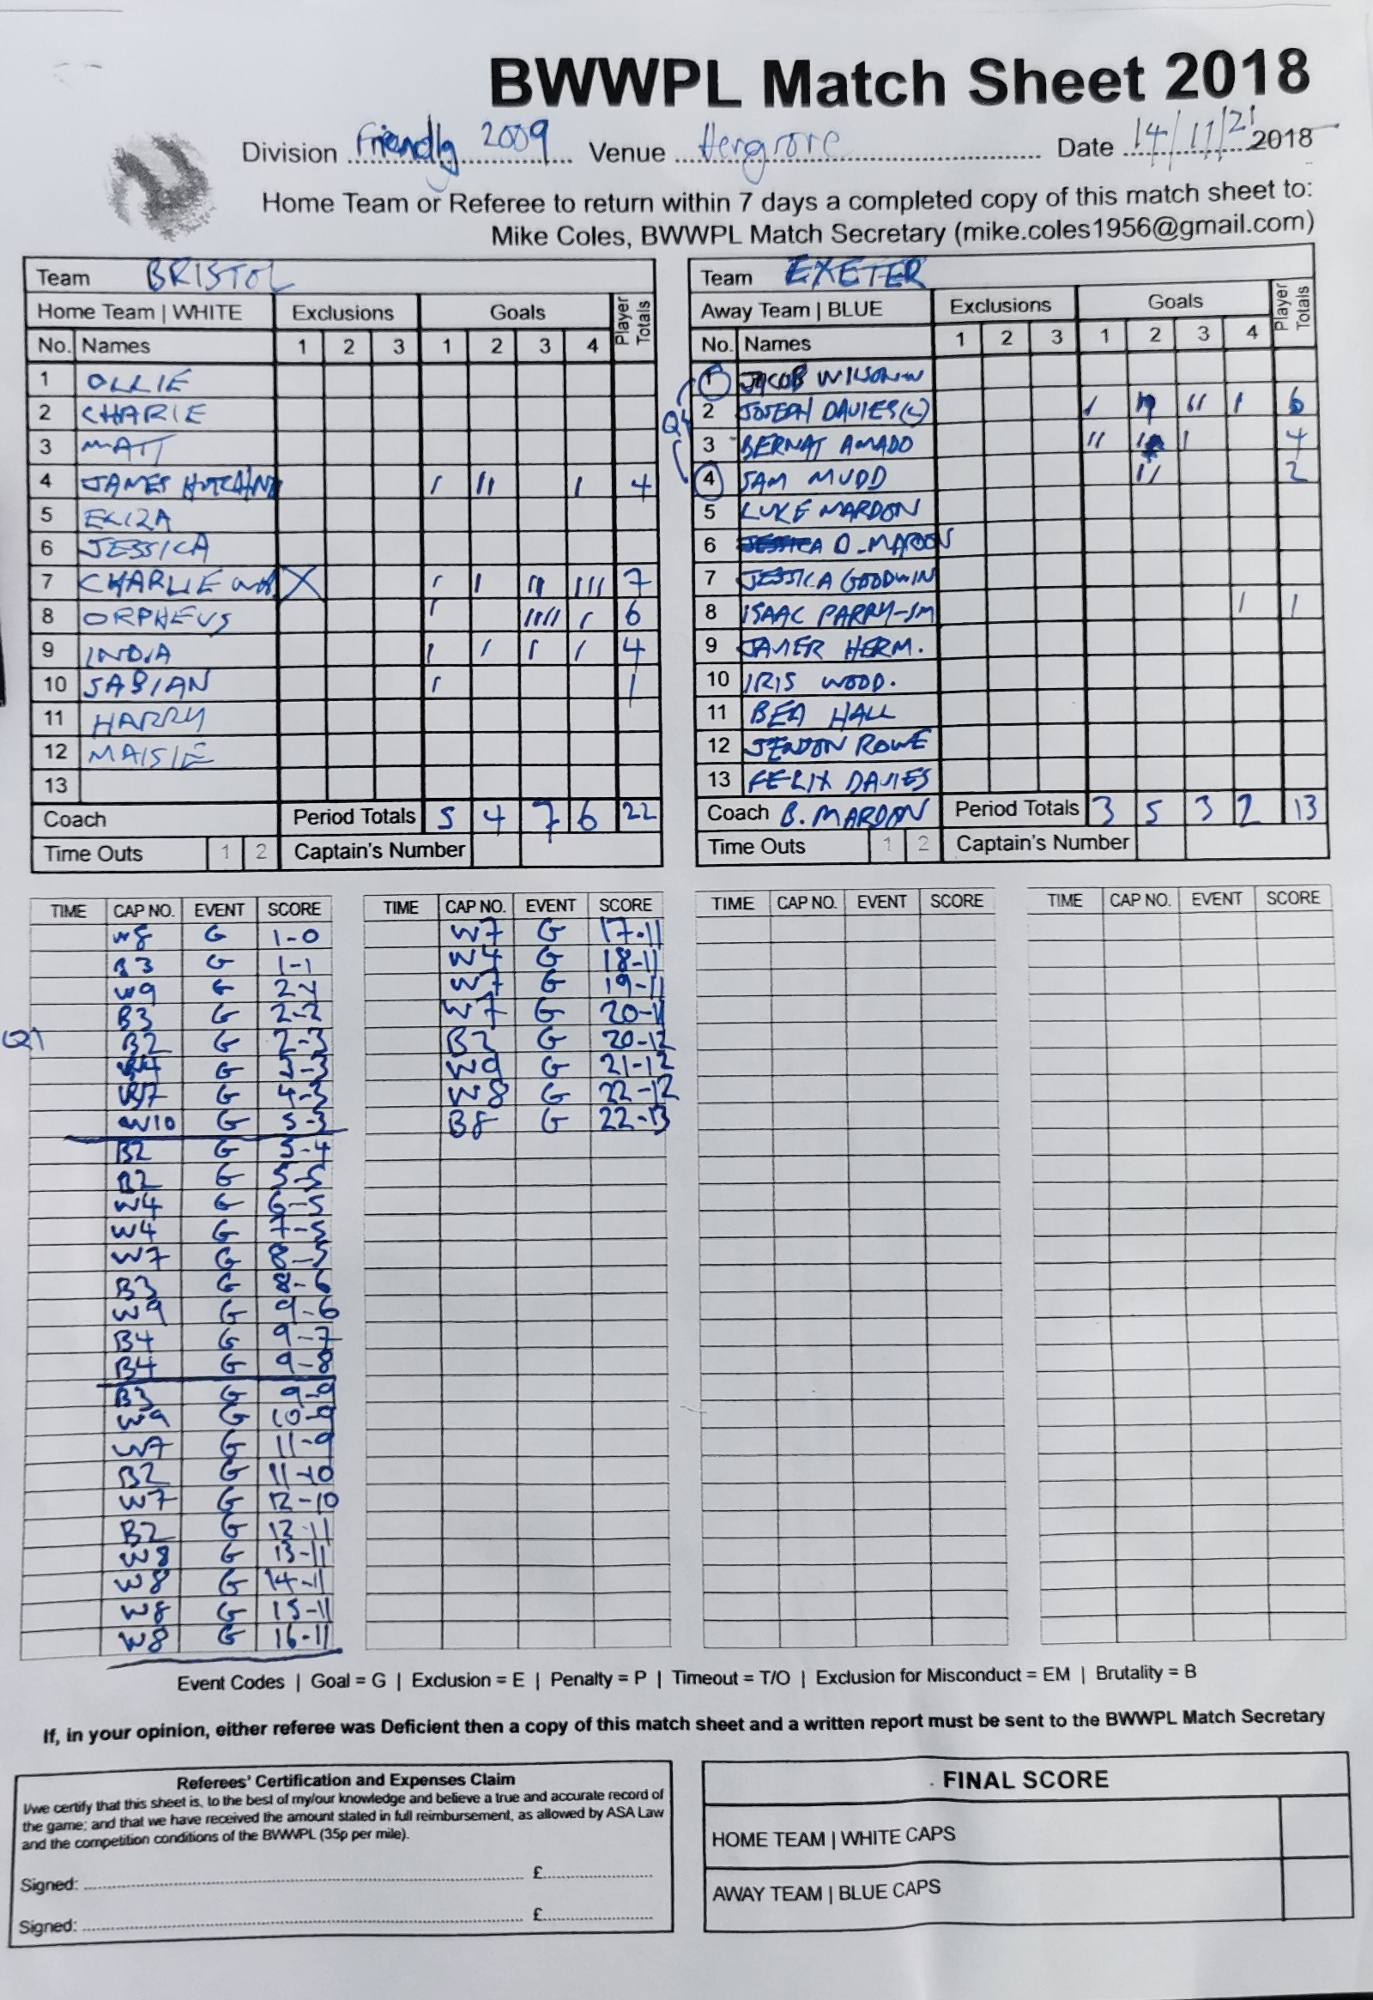 BWWPL Match Sheet 2018
Division Friendly 2009 Venue Hengrove Date 14/11/21 2018
Home Team or Referee to return within 7 days a completed copy of this match sheet to:
Mike Coles, BWWPL Match Secretary (mike.coles1956@gmail.com)
Team BRISTOL
Home Team | WHITE Exclusions Goals Player Totals
No. Names 1 2 3 1 2 3 4
1 OLLIE
2 CHARIE
3 MATT
4 JAMES I II I 4
5 ELIZA
6 JESSICA
7 CHARLIE X I I II III 7
8 ORPHEUS I IIII I 6
9 INDIA I I I I 4
10 SABIAN I 1
11 HARRY
12 MAISIE
13
Coach Period Totals 5 4 7 6 22
Time Outs 1 2 Captain's Number
Team EXETER
Away Team | BLUE Exclusions Goals Player Totals
No. Names 1 2 3 1 2 3 4
1 JACOB WILSON
2 JOSEPH DAVIES (C) I II II I 6
3 BERNAT AMADO II I I 4
4 SAM MUDD II 2
5 LUKE MARDON
6 D. MARDON
7 JESSICA GOODWIN
8 ISAAC PARRY-SM I 1
9 JAVIER HERM.
10 IRIS WOOD.
11 BEA HALL
12 ROWE
13 FELIX DAVIES
Coach B. MARDON Period Totals 3 5 3 2 13
Time Outs 1 2 Captain's Number
TIME CAP NO. EVENT SCORE
W8 G 1-0
B3 G 1-1
W9 G 2-1
B3 G 2-2
Q1 B2 G 2-3
W4 G 3-3
W7 G 4-3
W10 G 5-3
B2 G 5-4
B2 G 5-5
W4 G 6-5
W4 G 7-5
W7 G 8-5
B3 G 8-6
W9 G 9-6
B4 G 9-7
B4 G 9-8
B3 G 9-9
W9 G 10-9
W7 G 11-9
B2 G 11-10
W7 G 12-10
B2 G 12-11
W8 G 13-11
W8 G 14-11
W8 G 15-11
W8 G 16-11
TIME CAP NO. EVENT SCORE
W7 G 17-11
W4 G 18-11
W7 G 19-11
W7 G 20-11
B2 G 20-12
W9 G 21-12
W8 G 22-12
B8 G 22-13
TIME CAP NO. EVENT SCORE
TIME CAP NO. EVENT SCORE
Event Codes | Goal = G | Exclusion = E | Penalty = P | Timeout = T/O | Exclusion for Misconduct = EM | Brutality = B
If, in your opinion, either referee was Deficient then a copy of this match sheet and a written report must be sent to the BWWPL Match Secretary
Referees' Certification and Expenses Claim
I/we certify that this sheet is, to the best of my/our knowledge and believe a true and accurate record of
the game; and that we have received the amount stated in full reimbursement, as allowed by ASA Law
and the competition conditions of the BWWPL (35p per mile).
Signed: £
Signed: £
FINAL SCORE
HOME TEAM | WHITE CAPS
AWAY TEAM | BLUE CAPS